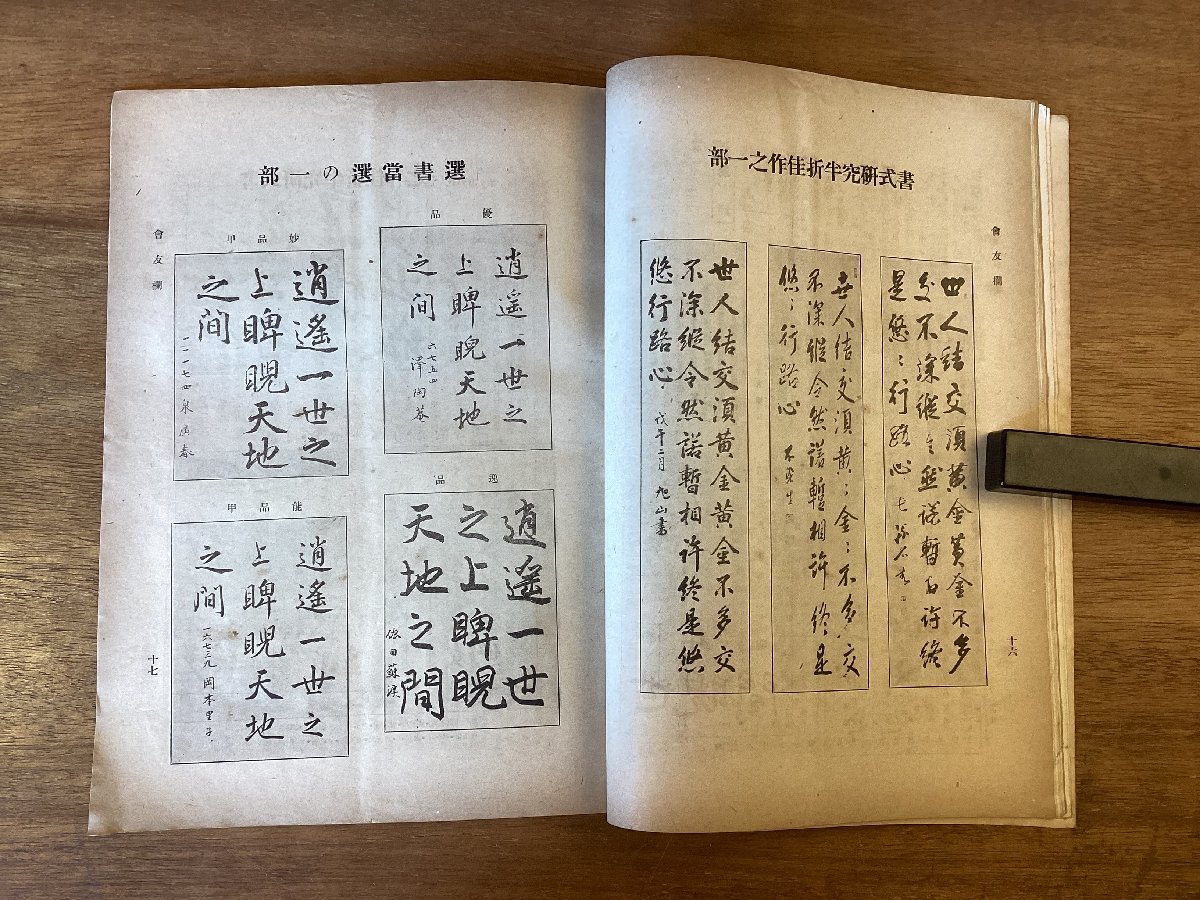 書式研究半折佳作之一部
會友欄
世人結交須黃金黃金不多
交不深縱令然諾暫相許終
是悠〻行路心
世人結交須黃〻金〻不多交
不深縱令然諾暫相許終是
悠〻行路心
世人結交須黃金黃金不多交
不深縱令然諾暫相許終是悠
悠行路心 戊午二月 旭山書
十六
選書當選の一部
會友欄
優品
逍遥一世之
上睥睨天地
之間
六七五四
逸品
逍遥一世
之上睥睨
天地之間
妙品甲
逍遙一世之
上睥睨天地
之間
一一一七四
能品甲
逍遙一世之
上睥睨天地
之間
一六七三九 岡本里子
十七